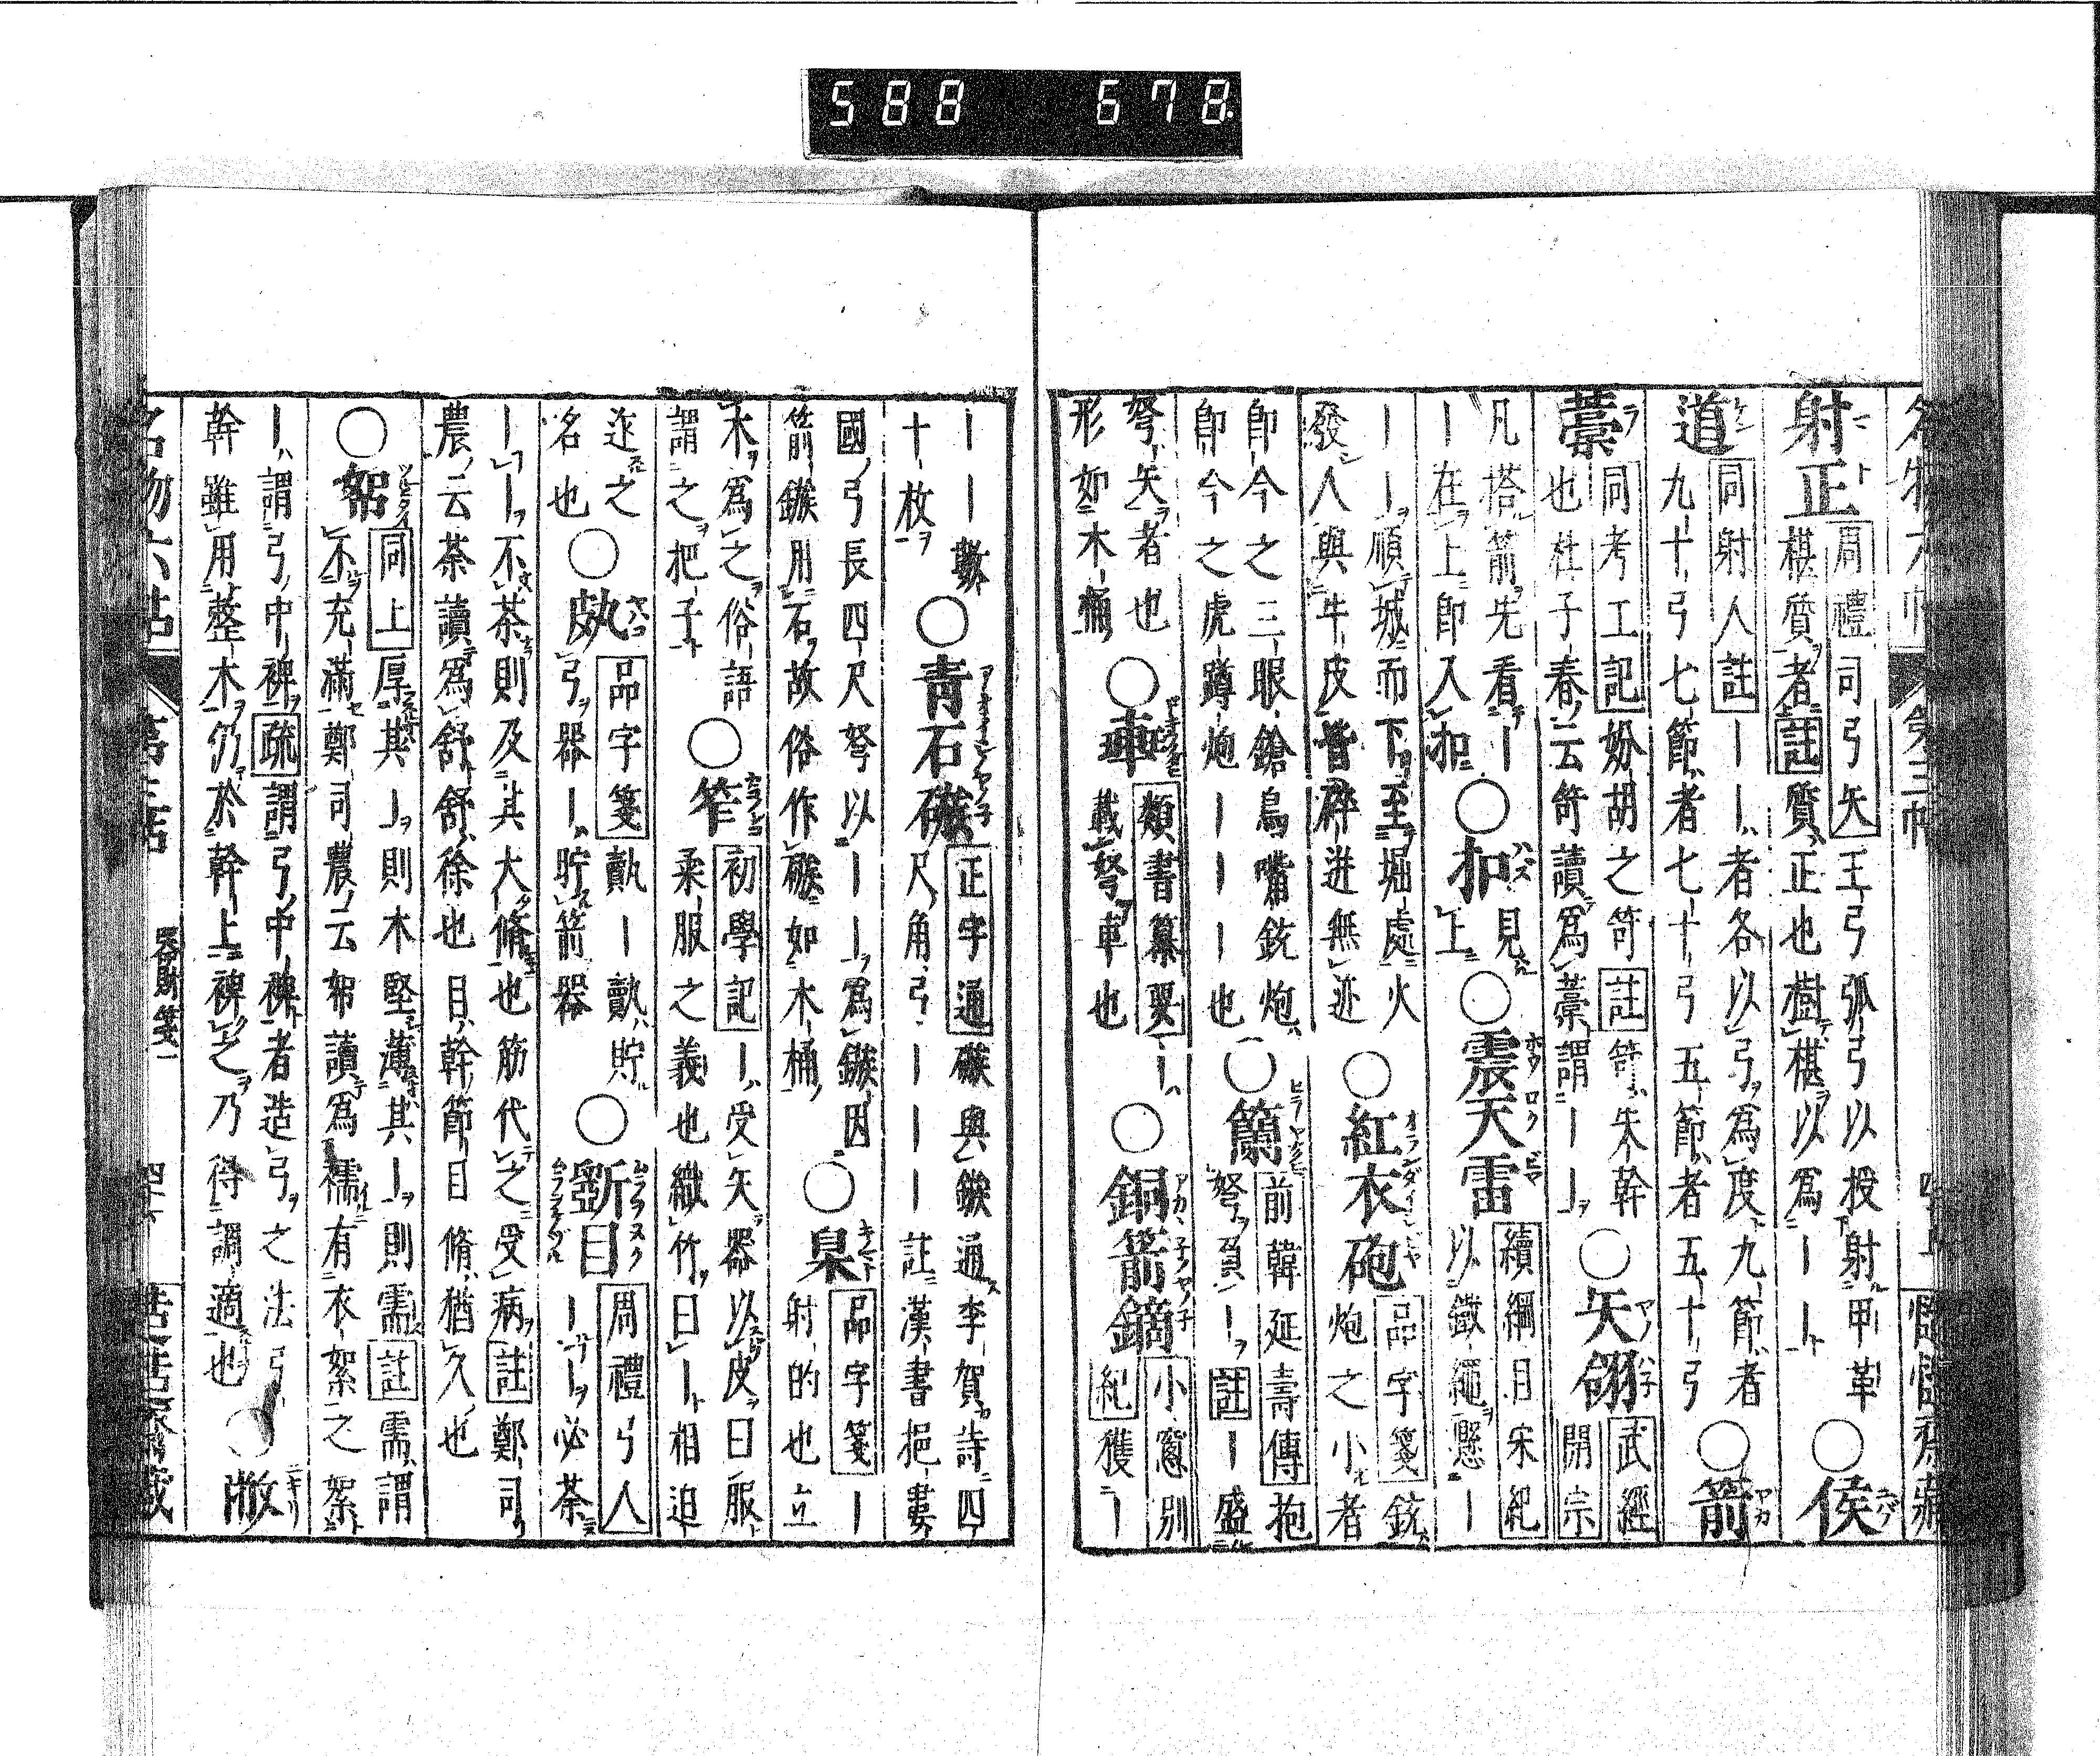 射正 周禮司弓矢王弓弧弓以授射甲革
椹質者註質正也樹椹以爲丨丨 ○侯
道 同射人註丨丨者各以弓爲度九節者
九十弓七節者七十弓五節者五十弓 ○箭
藁 同考工記妢胡之笴註笴朱幹
也杜子春云笴讀爲藁謂丨丨 ○矢翎 武經
開宗
凡搭箭先看丨
丨在上即入扣 ○扣 見
上 ○震天雷 續綱目宋紀
以鐵繩懸丨
丨丨順城而下至堀處火
發人與牛皮皆碎迸無迹 ○紅衣砲 品字箋銃
炮之小者
即今之三眼鎗鳥嘴銃炮
即今之虎蹲炮丨丨丨也 ○籣 前韓延壽傳抱
弩負丨註丨盛
弩矢者也
形如木桶 ○ 類書纂要丨
載弩車也 ○銅箭鏑 小窓別
紀獲丨
丨丨數
十枚 ○青石 正字通鏃通李賀詩四
尺角弓丨丨丨註漢書挹婁
國弓長四尺弩以丨丨爲鏃因
箭鏃用石故俗作如木桶 ○臬 品字箋丨
射的也立
木爲之俗語
謂之把子 ○笮 初學記丨受矢器以皮曰服
柔服之義也織竹曰丨相迫
迮之
名也 ○ 品字箋丨貯
弓器丨貯箭器 ○斲目 周禮弓人
丨丨必荼
丨丨不荼則及其大脩也筋代之受病註鄭司
農云荼讀爲舒舒徐也目幹節目脩猶久也
○帤 同上厚其丨則木堅薄其丨則需註需謂
不充滿鄭司農云帤讀爲襦有衣絮之絮
丨謂弓中裨疏謂弓中裨裨者造弓之法弓
幹雖用整木仍於幹上裨之乃得調適也 ○敝
器財箋一